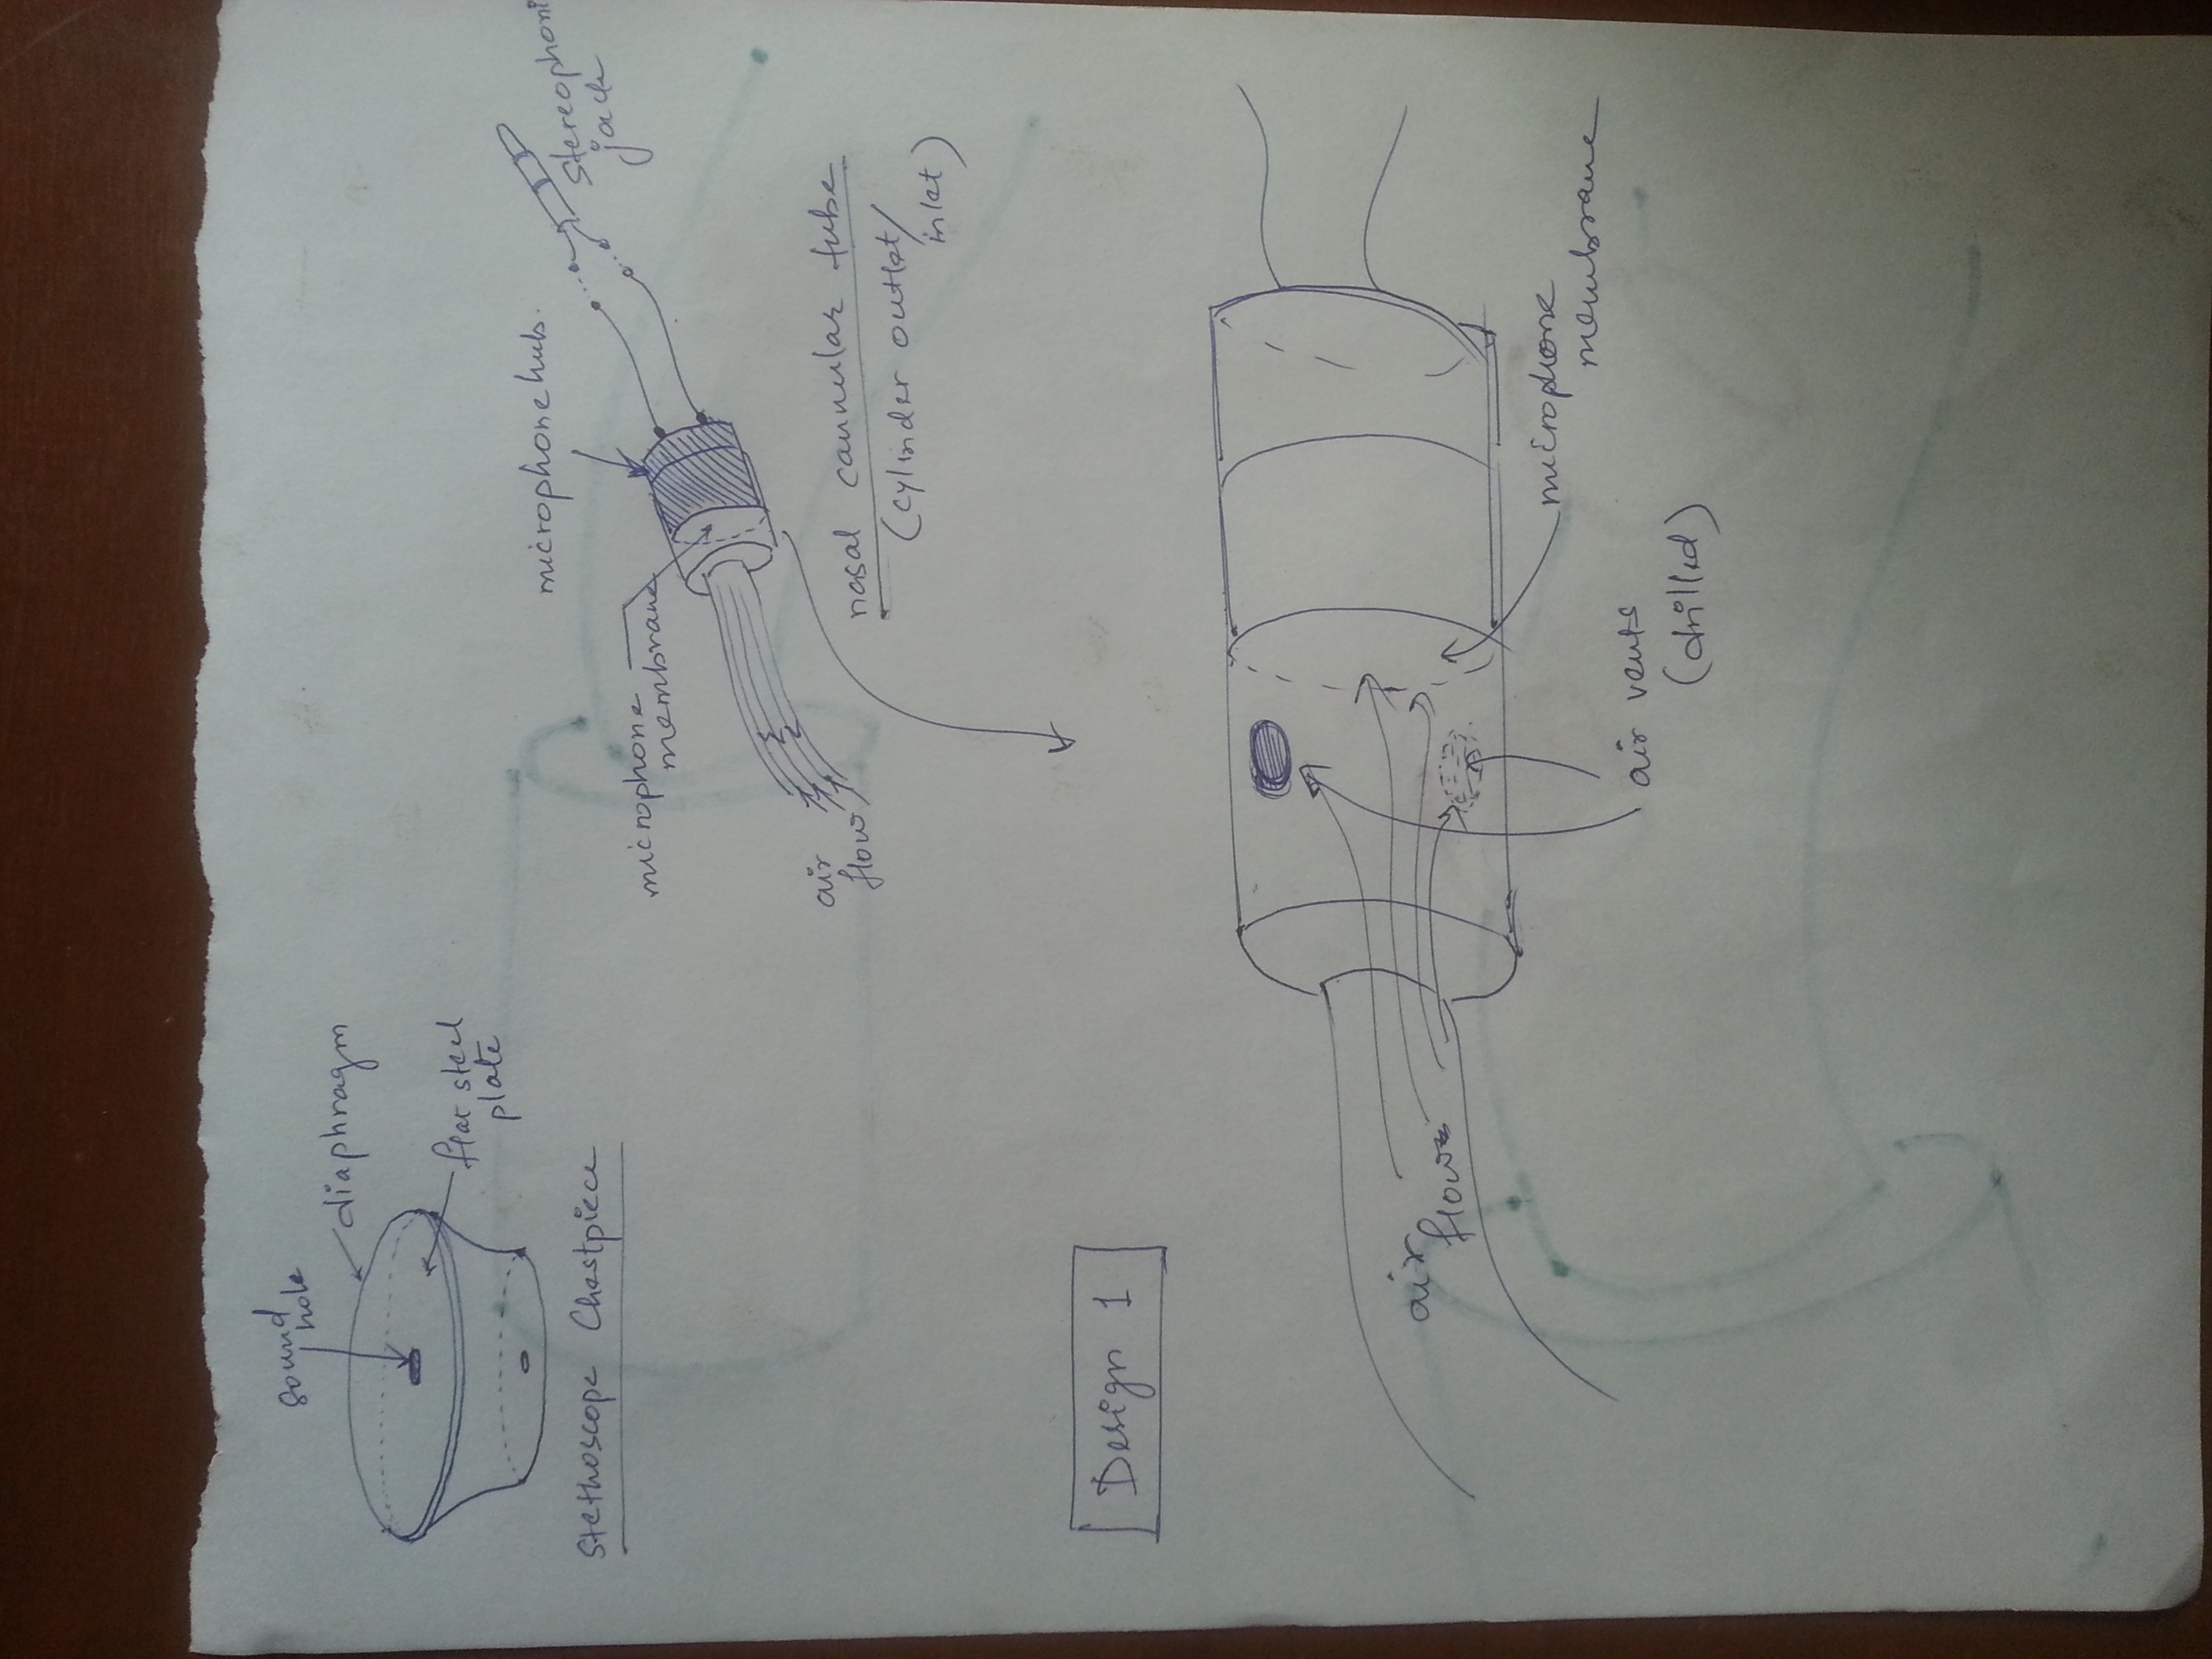 sound
hole
diaphragm
flat steel
plate
Stethoscope Chestpiece
microphone hub.
stereophoni
jack
microphone
membrane
air
flow
nasal cannular tube
(cylinder outlet/
inlet)
Design 1
air
flow
microphone
membrane
air vents
(drilled)